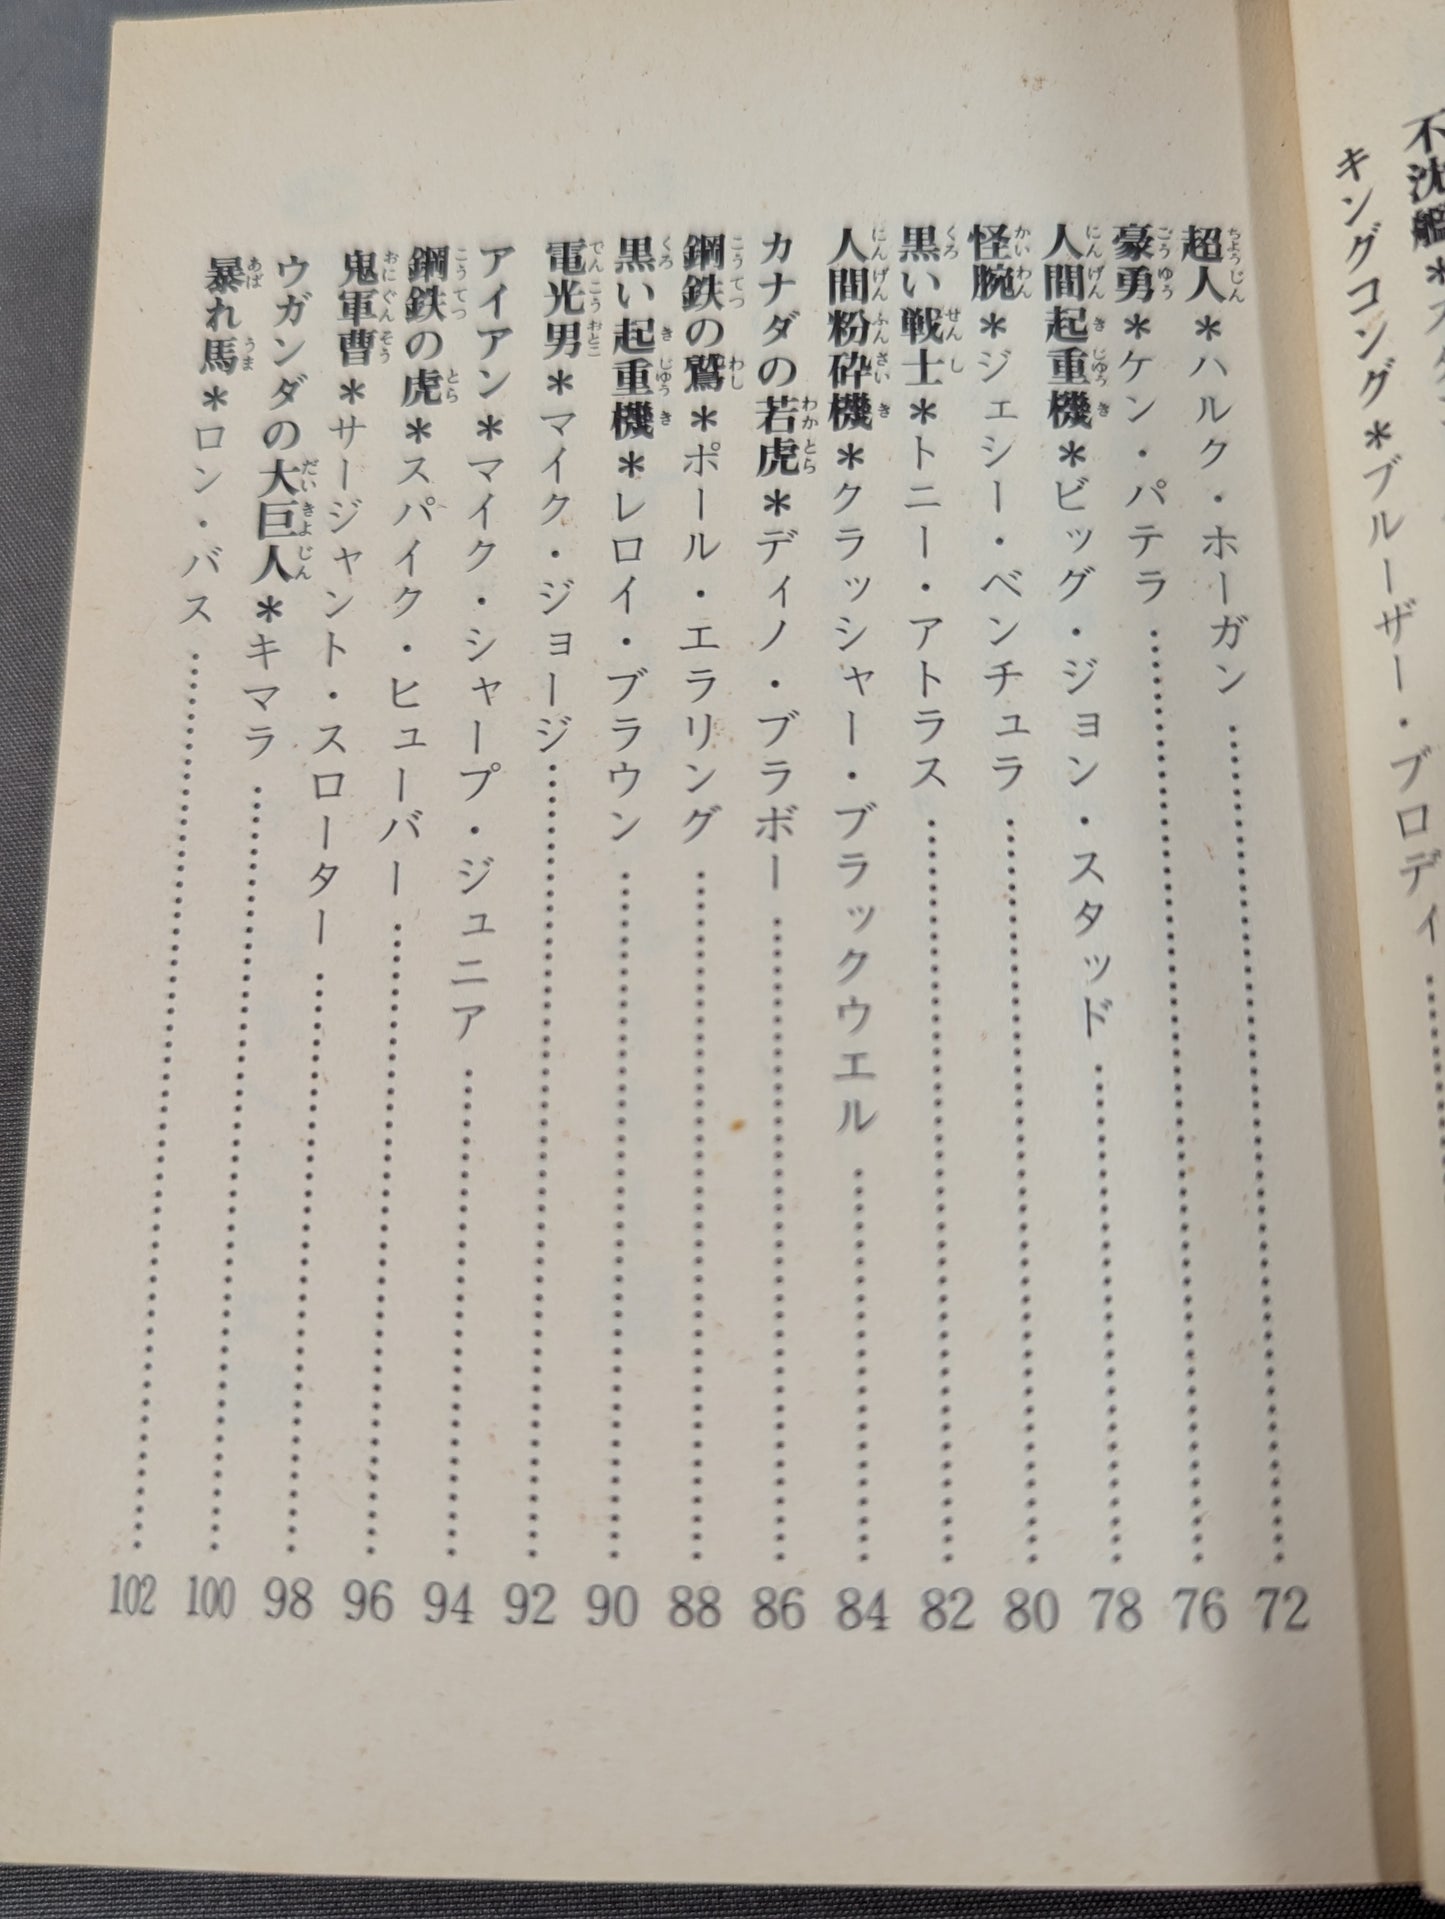 不沈艦＊ス
キングコング＊ブルーザー・ブロディ
超人＊ハルク・ホーガン……72
豪勇＊ケン・パテラ……76
人間起重機＊ビッグ・ジョン・スタッド……78
怪腕＊ジェシー・ベンチュラ……80
黒い戦士＊トニー・アトラス……82
人間粉砕機＊クラッシャー・ブラックウエル……84
カナダの若虎＊ディノ・ブラボー……86
鋼鉄の鷲＊ポール・エラリング……88
黒い起重機＊レロイ・ブラウン……90
電光男＊マイク・ジョージ……92
アイアン＊マイク・シャープ・ジュニア……94
鋼鉄の虎＊スパイク・ヒューバー……96
鬼軍曹＊サージャント・スローター……98
ウガンダの大巨人＊キマラ……100
暴れ馬＊ロン・バス……102